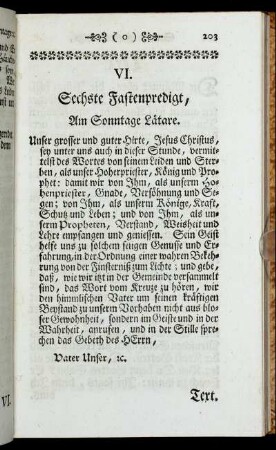 ( 0 ) 203
VI.
Sechste Fastenpredigt,
Am Sonntage Lätare.
Unser grosser und guter Hirte, Jesus Christus,
sey unter uns auch in dieser Stunde, vermit-
telst des Wortes von seinem Leiden und Ster-
ben, als unser Hoherpriester, König und Pro-
phet: damit wir von Ihm, als unserm Ho-
henpriester, Gnade, Versöhnung und Se-
gen; von Ihm, als unserm Könige, Kraft,
Schutz und Leben; und von Ihm, als un-
serm Propheten, Verstand, Weisheit und
Lehre empfangen und geniessen. Sein Geist
helfe uns zu solchem seligen Genusse und Er-
fahrung, in der Ordnung einer wahren Bekeh-
rung von der Finsterniß zum Lichte; und gebe,
daß, wie wir itzt in der Gemeinde versammelt
sind, das Wort vom Kreuze zu hören, wir
den himmlischen Vater um seinen kräftigen
Beystand zu unserm Vorhaben nicht aus blos-
ser Gewohnheit, sondern im Geiste und in der
Wahrheit, anrufen, und in der Stille spre-
chen das Gebeth des HErrn,
Vater Unser, ꝛc.
Text.
VI.